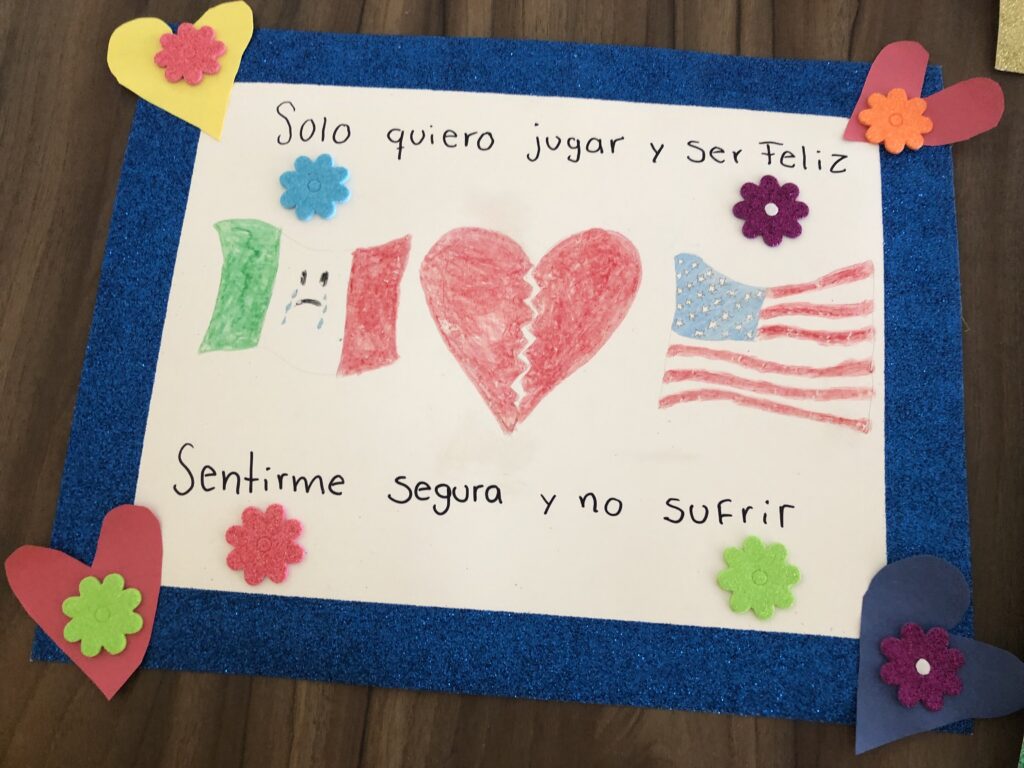 Solo quiero jugar y ser Feliz
Sentirme segura y no sufrir